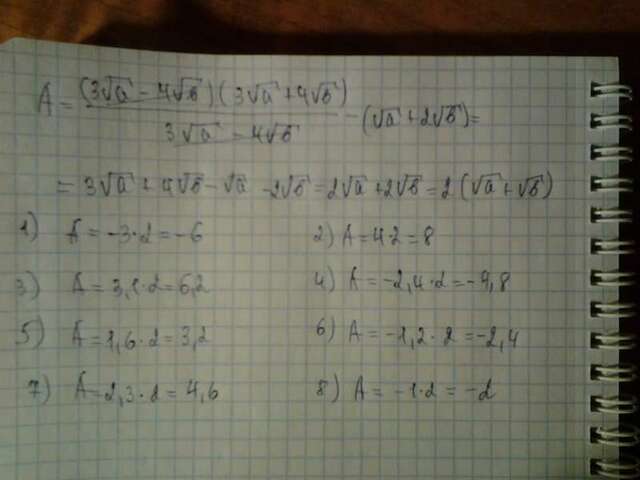 A = (3√a - 4√b)(3√a + 4√b) / 3√a - 4√b - (√a + 2√b) =
= 3√a + 4√b - √a - 2√b = 2√a + 2√b = 2(√a + √b)
1) A = -3·2 = -6
2) A = 4·2 = 8
3) A = 3,1·2 = 6,2
4) A = -2,4·2 = -4,8
5) A = 1,6·2 = 3,2
6) A = -1,2·2 = -2,4
7) A = 2,3·2 = 4,6
8) A = -1·2 = -2